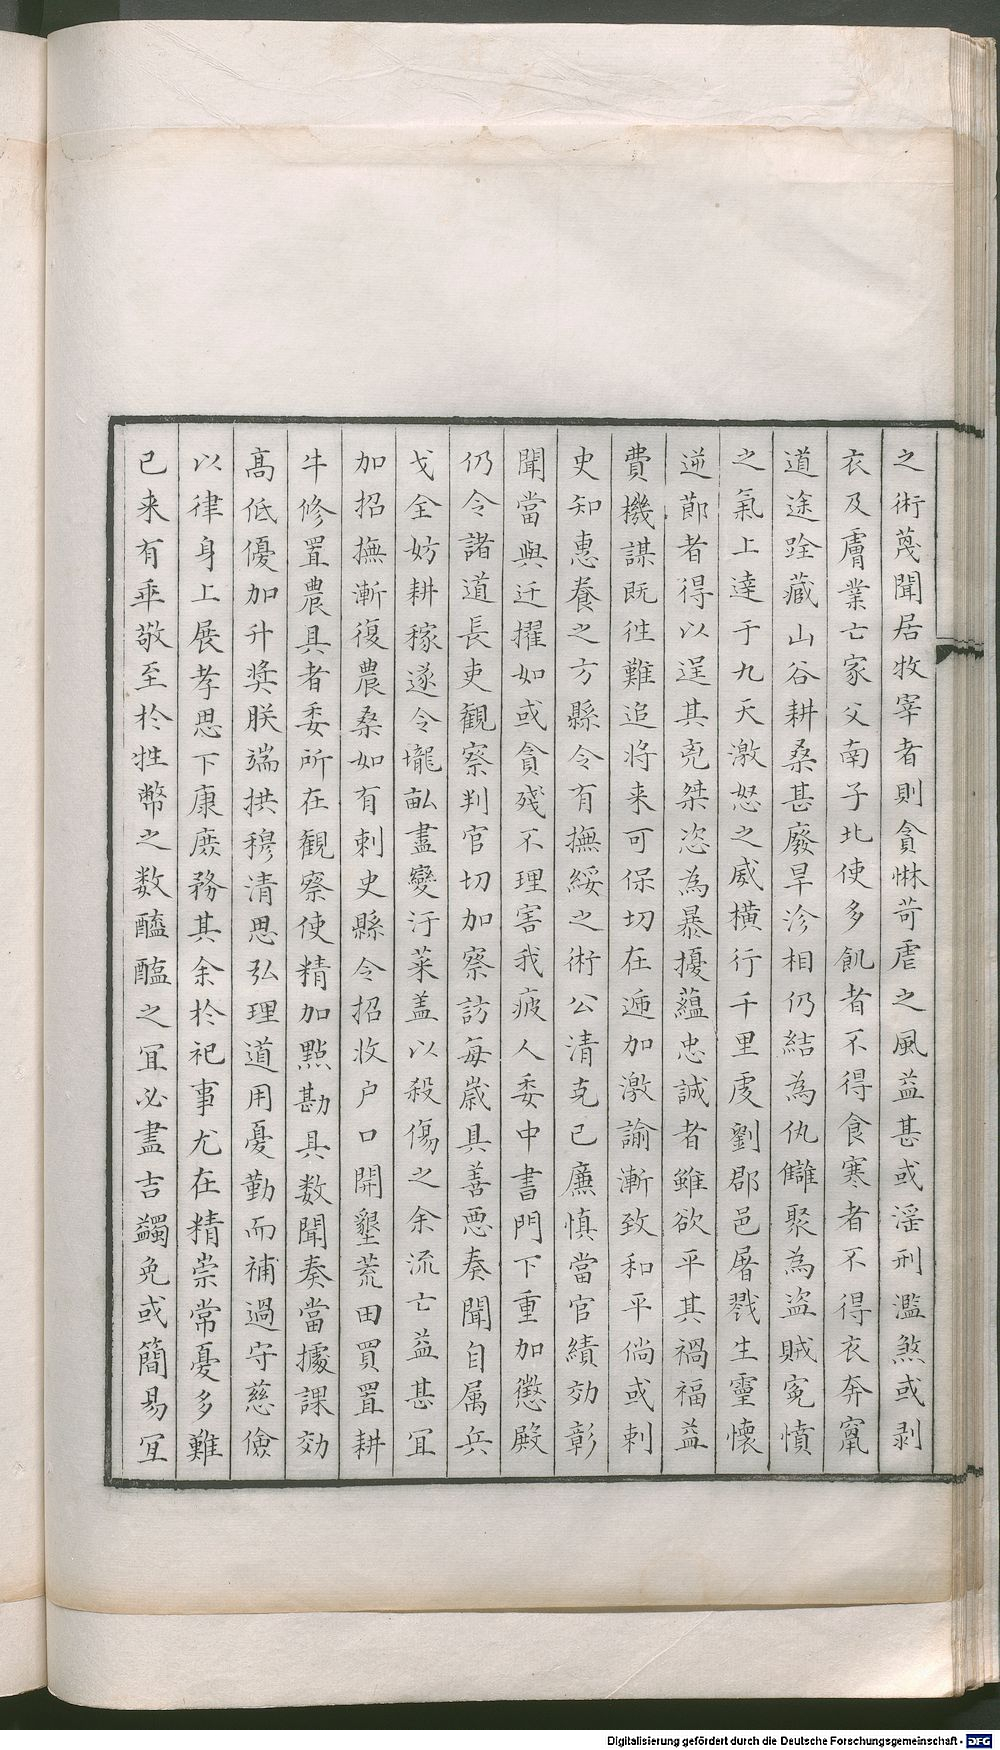 之術蔑聞居牧宰者則貪惏苛虐之風益甚或淫刑濫煞或剥
衣及膚業亡家父南子北使多飢者不得食寒者不得衣奔竄
道途跧藏山谷耕桑甚廢旱沴相仍結為仇讎聚為盜賊寃憤
之氣上達于九天激怒之威横行千里虔劉郡邑屠戮生靈懷
逆節者得以逞其兇桀恣為暴擾蘊忠誠者雖欲平其禍福益
費機謀既徃難追将来可保切在逓加激諭漸致和平倘或刺
史知惠養之方縣令有撫綏之術公清克己廉慎當官績効彰
聞當與迁擢如或貪殘不理害我疲人委中書門下重加懲殿
仍令諸道長吏觀察判官切加察訪每歲具善悪奏聞自属兵
戈全妨耕稼遂令壠畝盡變汙萊盖以殺傷之余流亡益甚冝
加招撫漸復農桑如有刺史縣令招收户口開墾荒田買置耕
牛修置農具者委所在觀察使精加點勘具数聞奏當據課効
髙低優加升奖朕端拱穆清思弘理道用憂勤而補過守慈儉
以律身上展孝思下康庶務其余於祀事尤在精崇常憂多難
已来有乖敬至於牲幣之数醯醢之冝必盡吉蠲免或簡易冝
Digitalisierung gefördert durch die Deutsche Forschungsgemeinschaft - DFG